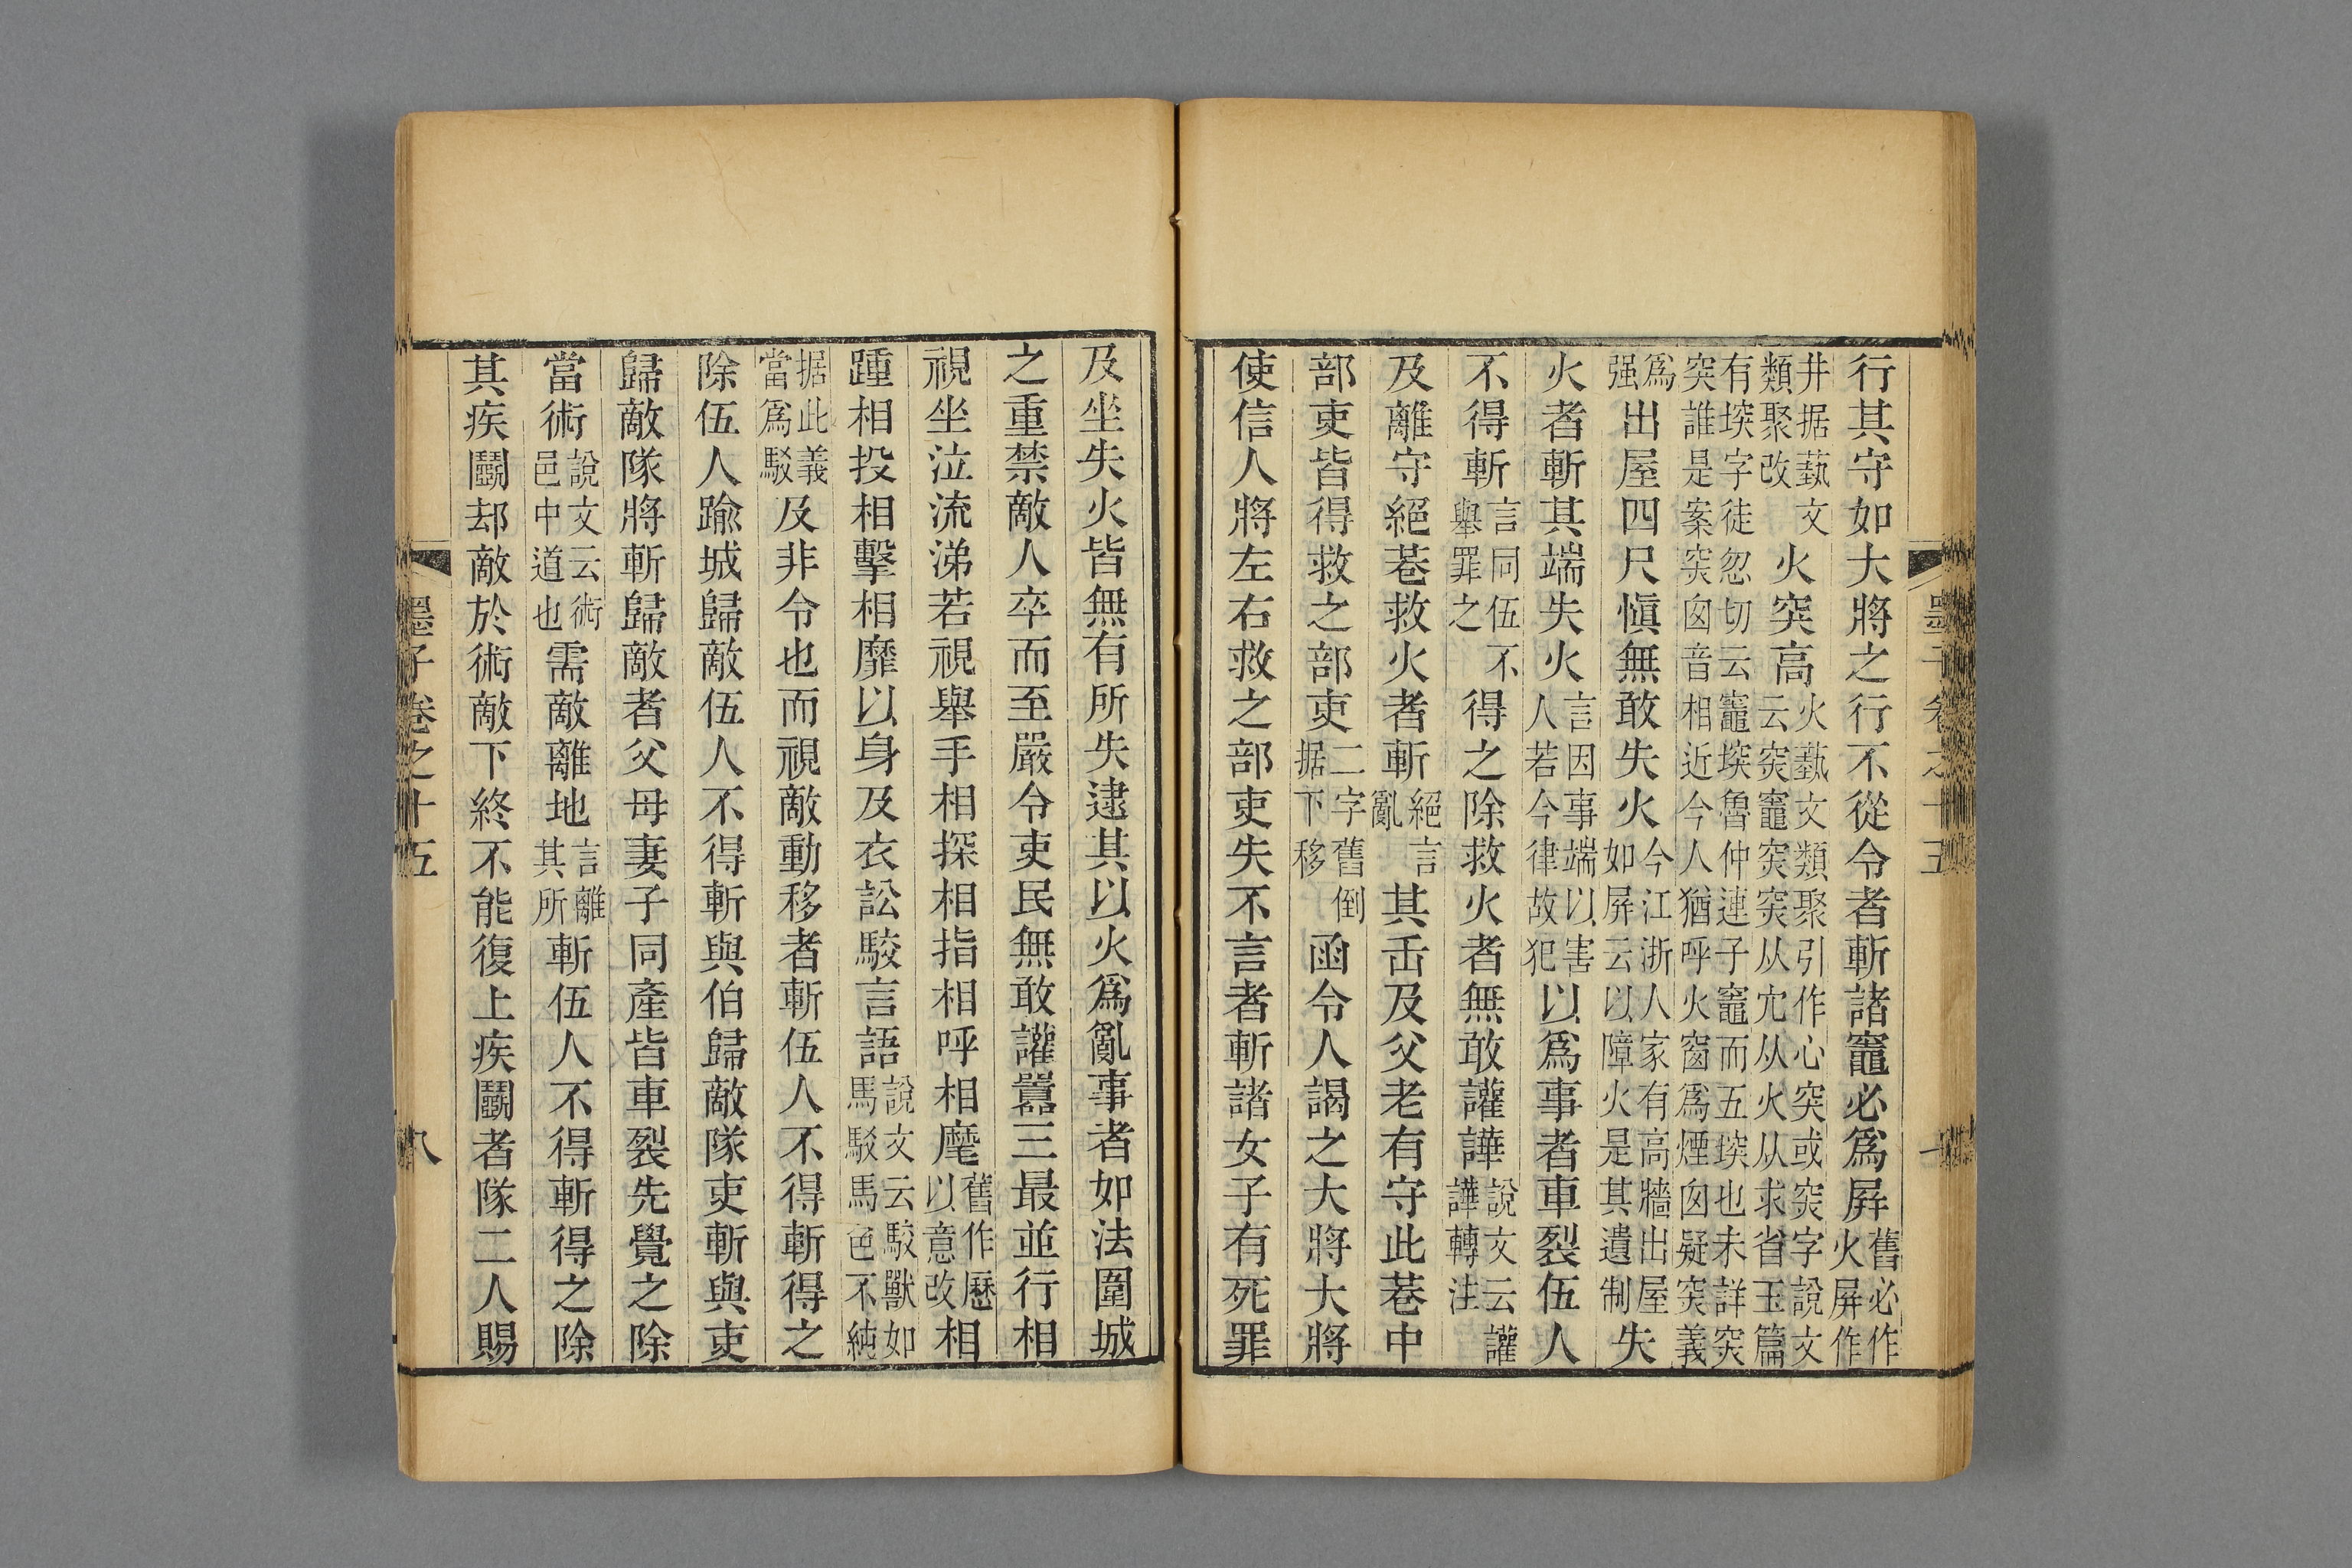 行其守如大將之行不從令者斬諸竈必爲屛舊必作
火屏作
井据藝文
類聚改火突高火藝文類聚引作心突或突字說文
云突竈突突从穴从火从求省玉篇
有堗字徒忽切云竈堗魯仲連子竈而五堗也未詳突
突誰是案突囱音相近今人猶呼火窗爲煙囱疑突義
爲
强出屋四尺愼無敢失火今江浙人家有高牆出屋
如屏云以障火是其遺制失
火者斬其端失火言因事端以害
人若今律故犯以爲事者車裂伍人
不得斬言同伍不
舉罪之得之除救火者無敢讙譁說文云讙
譁轉注
及離守絕巷救火者斬絕言
亂其缶及父老有守此巷中
部吏皆得救之部吏二字舊倒
据下移函令人謁之大將大將
使信人將左右救之部吏失不言者斬諸女子有死罪
及坐失火皆無有所失逮其以火爲亂事者如法圍城
之重禁敵人卒而至嚴令吏民無敢讙嚻三最並行相
視坐泣流涕若視舉手相探相指相呼相麾舊作歷
以意改相
踵相投相擊相靡以身及衣訟駮言語說文云駮獸如
馬駁馬色不純
据此義
當爲駁及非令也而視敵動移者斬伍人不得斬得之
除伍人踰城歸敵伍人不得斬與伯歸敵隊吏斬與吏
歸敵隊將斬歸敵者父母妻子同產皆車裂先覺之除
當術說文云術
邑中道也需敵離地言離
其所斬伍人不得斬得之除
其疾鬭却敵於術敵下終不能復上疾鬭者隊二人賜
墨子卷之十五
八